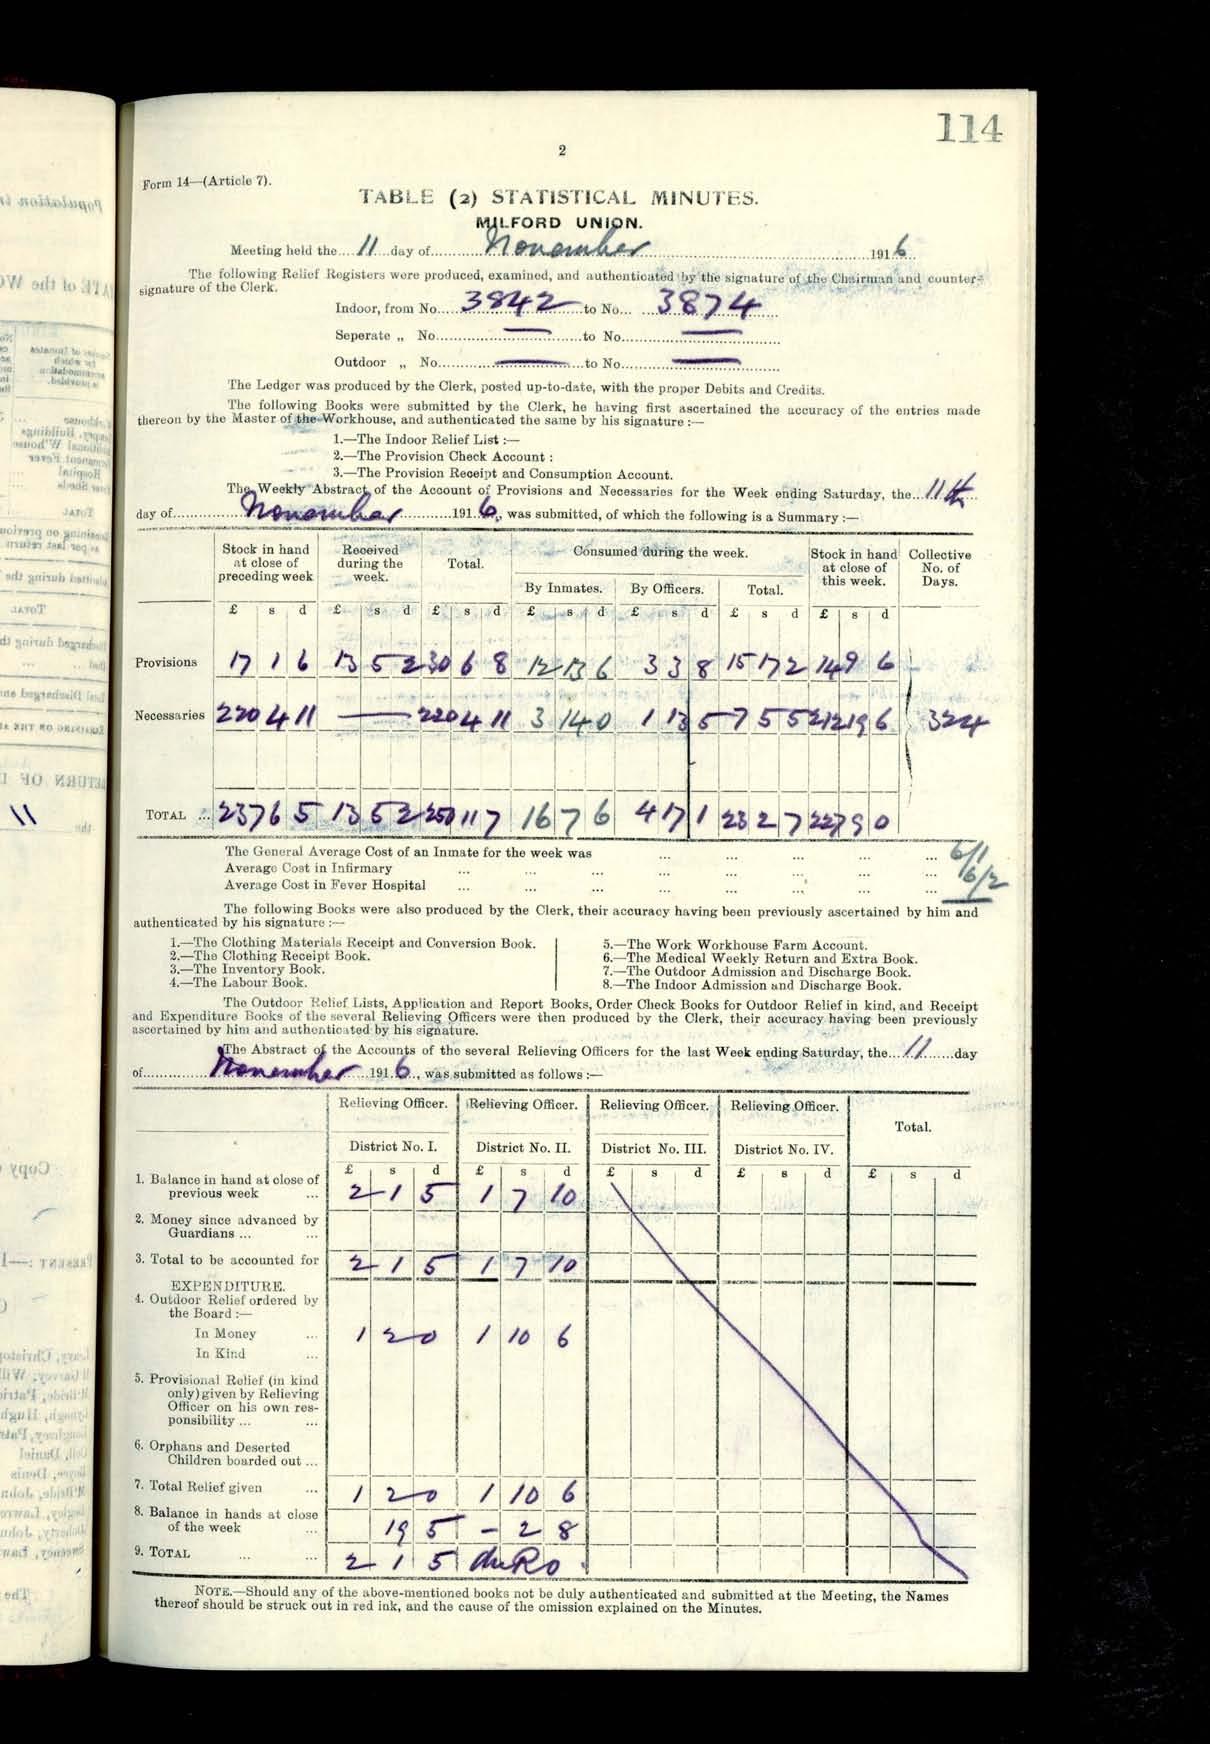 114
2
Form 14—(Article 7).
TABLE (2) STATISTICAL MINUTES.
MILFORD UNION.
Meeting held the....11....day of..........November..........1916.
The following Relief Registers were produced, examined, and authenticated by the signature of the Chairman and counter-
signature of the Clerk.
Indoor, from No.....3842.....to No.... 3874
Seperate „ No.....—.....to No.....—
Outdoor „ No.....—.....to No.....—
The Ledger was produced by the Clerk, posted up-to-date, with the proper Debits and Credits.
The following Books were submitted by the Clerk, he having first ascertained the accuracy of the entries made
thereon by the Master of the Workhouse, and authenticated the same by his signature :—
1.—The Indoor Relief List :—
2.—The Provision Check Account :
3.—The Provision Receipt and Consumption Account.
The Weekly Abstract of the Account of Provisions and Necessaries for the Week ending Saturday, the...11th
day of..........November..........1916., was submitted, of which the following is a Summary :—
Stock in hand at close of preceding week Received during the week. Total. Consumed during the week. Stock in hand at close of this week. Collective No. of Days.
By Inmates. By Officers. Total.
£ s d £ s d £ s d £ s d £ s d £ s d £ s d
Provisions 17 1 6 13 5 2 30 6 8 12 13 6 3 3 8 15 17 2 14 9 6
Necessaries 220 4 11 — 220 4 11 3 14 0 1 13 5 7 5 5 212 19 6 324
TOTAL ... 237 6 5 13 5 2 250 11 7 16 7 6 4 17 1 23 2 7 227 9 0
The General Average Cost of an Inmate for the week was ... ... ... ... ... 6/1
Average Cost in Infirmary ... ... ... ... ... ... ... ... 6/2
Average Cost in Fever Hospital ... ... ... ... ... ... ... ...
The following Books were also produced by the Clerk, their accuracy having been previously ascertained by him and
authenticated by his signature :—
1.—The Clothing Materials Receipt and Conversion Book.
2.—The Clothing Receipt Book.
3.—The Inventory Book.
4.—The Labour Book.
5.—The Work Workhouse Farm Account.
6.—The Medical Weekly Return and Extra Book.
7.—The Outdoor Admission and Discharge Book.
8.—The Indoor Admission and Discharge Book.
The Outdoor Relief Lists, Application and Report Books, Order Check Books for Outdoor Relief in kind, and Receipt
and Expenditure Books of the several Relieving Officers were then produced by the Clerk, their accuracy having been previously
ascertained by him and authenticated by his signature.
The Abstract of the Accounts of the several Relieving Officers for the last Week ending Saturday, the...11......day
of..........November..........1916., was submitted as follows :—
Relieving Officer. Relieving Officer. Relieving Officer. Relieving Officer. Total.
District No. I. District No. II. District No. III. District No. IV.
£ s d £ s d £ s d £ s d £ s d
1. Balance in hand at close of
previous week ... 2 1 5 1 7 10
2. Money since advanced by
Guardians ... ...
3. Total to be accounted for 2 1 5 1 7 10
EXPENDITURE.
4. Outdoor Relief ordered by
the Board :—
In Money ... 1 2 0 1 10 6
In Kind ...
5. Provisional Relief (in kind
only) given by Relieving
Officer on his own res-
ponsibility ... ...
6. Orphans and Deserted
Children boarded out ...
7. Total Relief given ... 1 2 0 1 10 6
8. Balance in hands at close
of the week ... 19 5 - 2 8
9. TOTAL ... ... 2 1 5 due R O
NOTE.—Should any of the above-mentioned books not be duly authenticated and submitted at the Meeting, the Names
thereof should be struck out in red ink, and the cause of the omission explained on the Minutes.